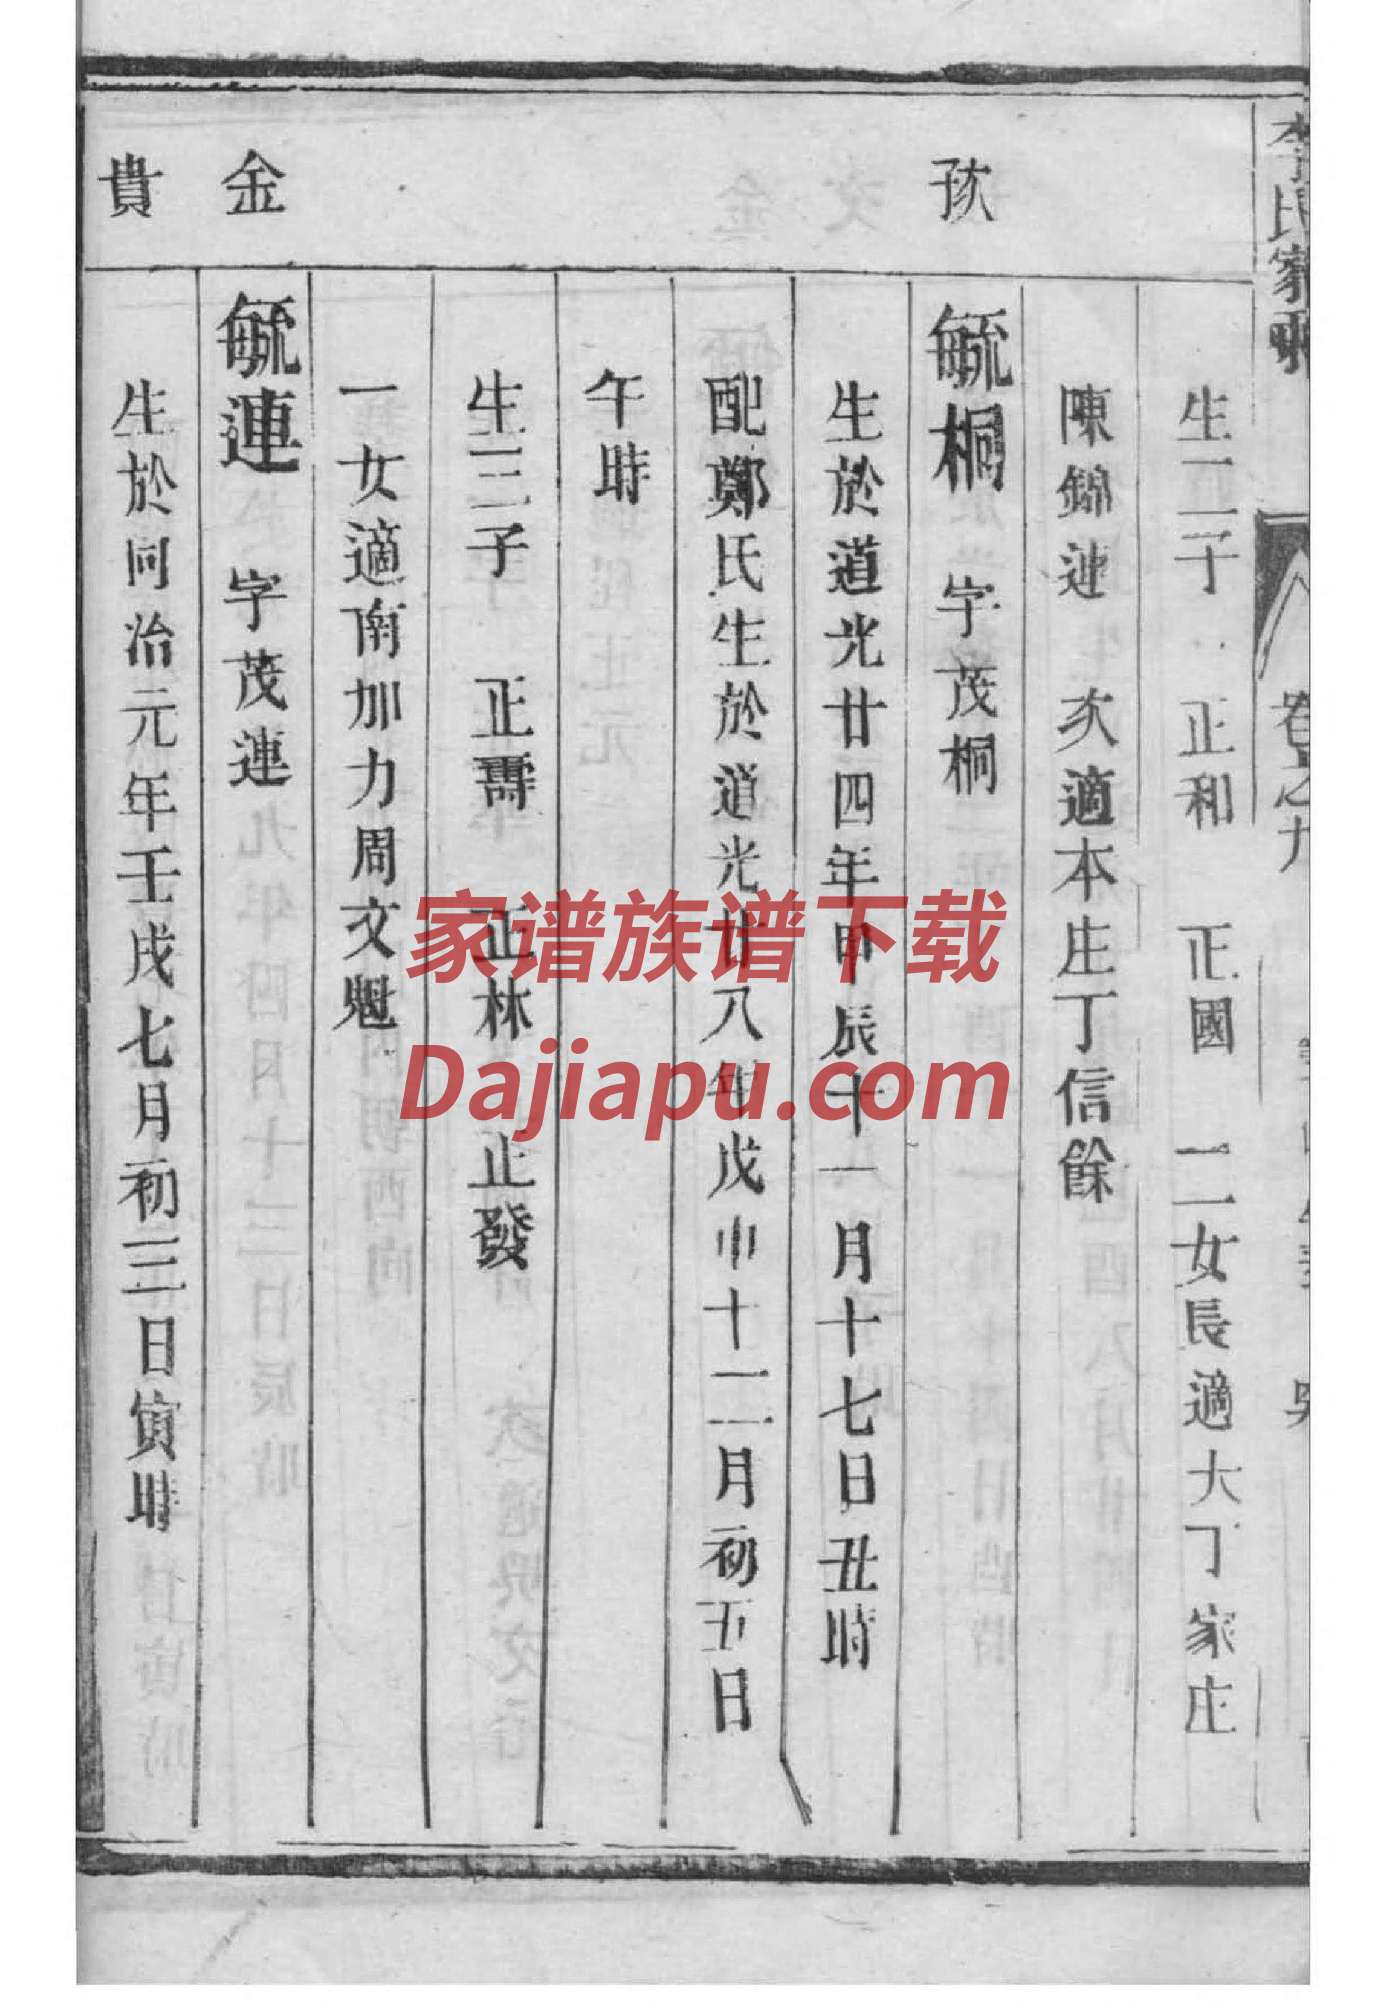 李氏家乘
卷之九
生二子 正和 正國 二女長適大丁家庄
陳錦漣 次適本庄丁信餘
毓桐 字茂桐
生於道光廿四年甲辰十一月十七日丑時
配鄭氏生於道光廿八年戊申十二月初五日
午時
生三子 正壽 正林 正發
一女適南加力周文魁
金
毓連 字茂連
貴
生於同治元年壬戌七月初三日寅時
家谱族谱下载
Dajiapu.com